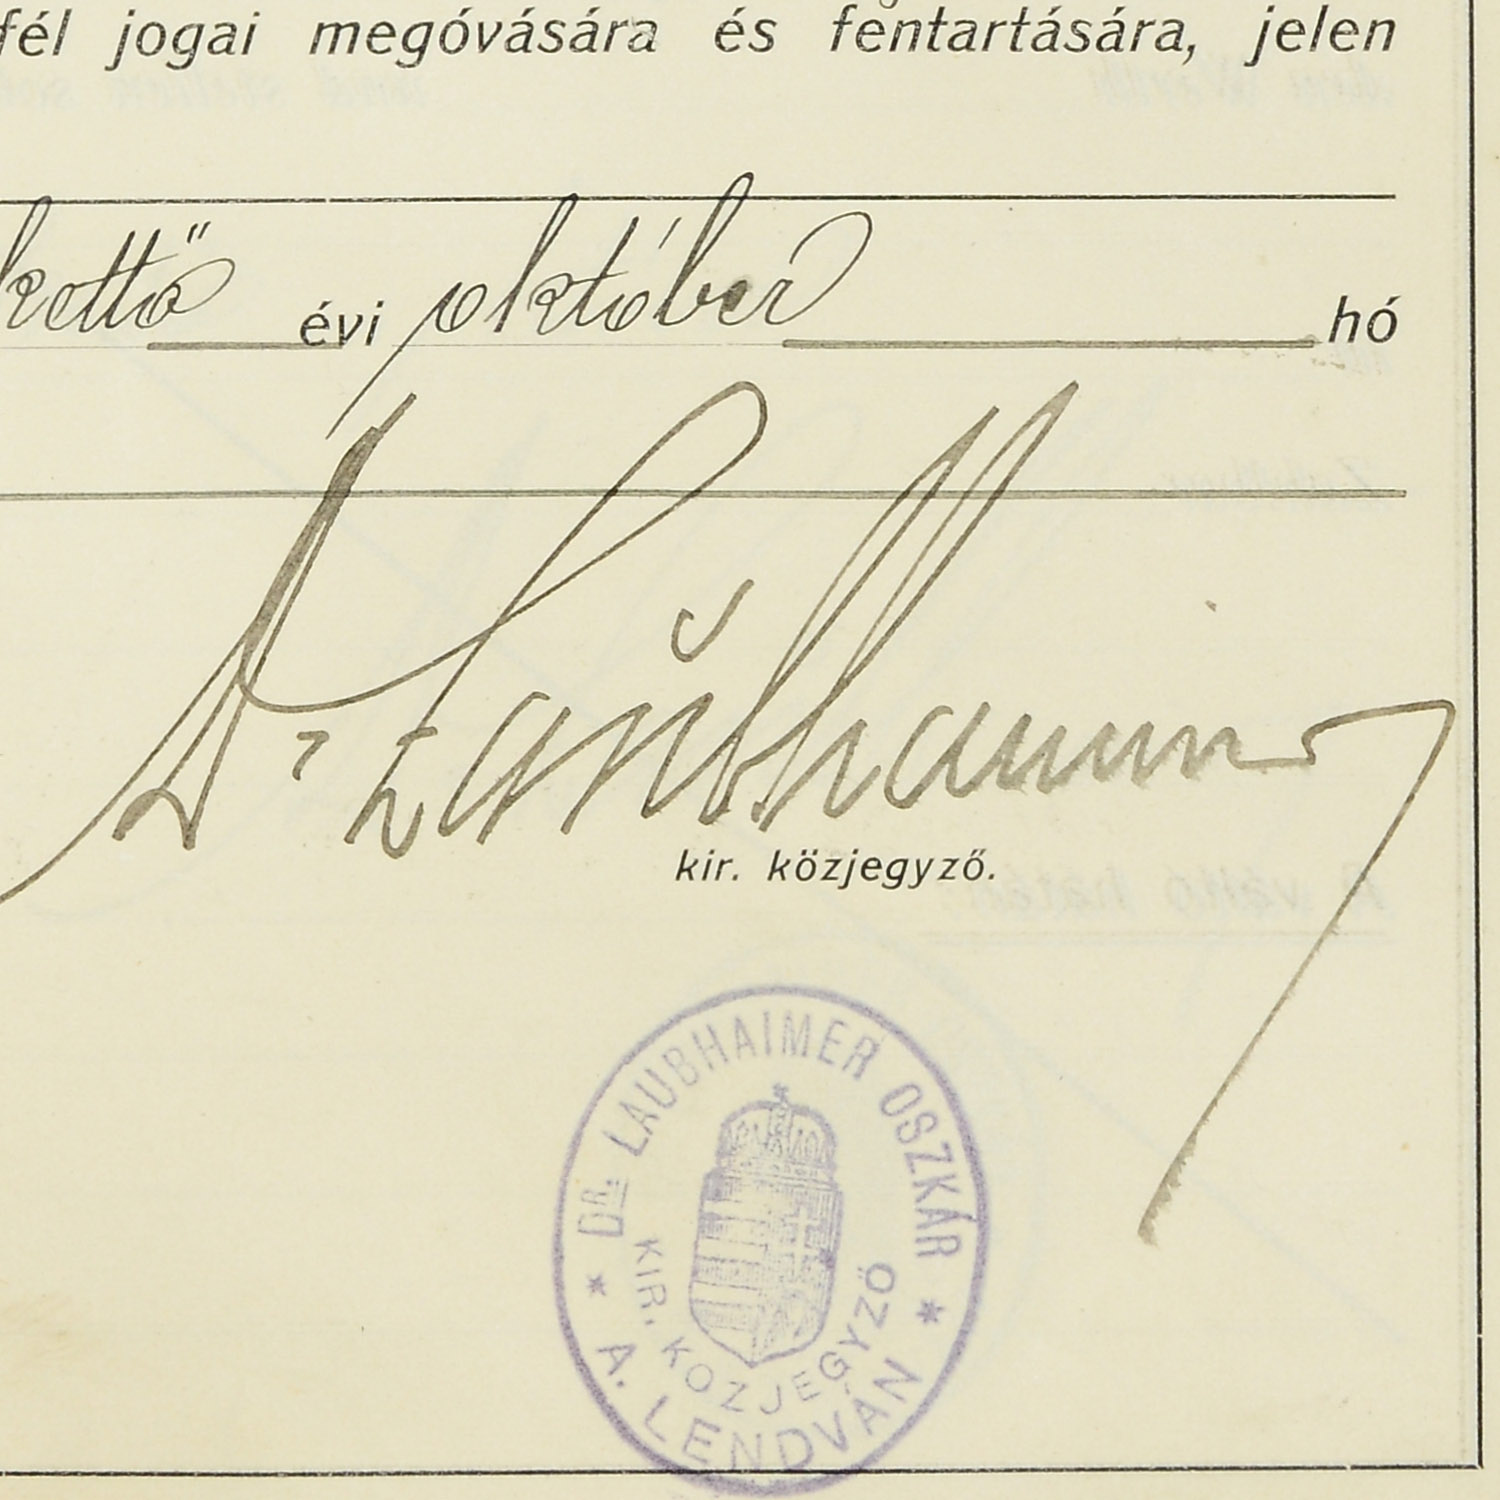 fél jogai megóvására és fentartására, jelen
kettő évi október hó
Dr Laubhaimer
kir. közjegyző.
* DR. LAUBHAIMER OSZKÁR *
KIR. KÖZJEGYZŐ
A. LENDVÁN